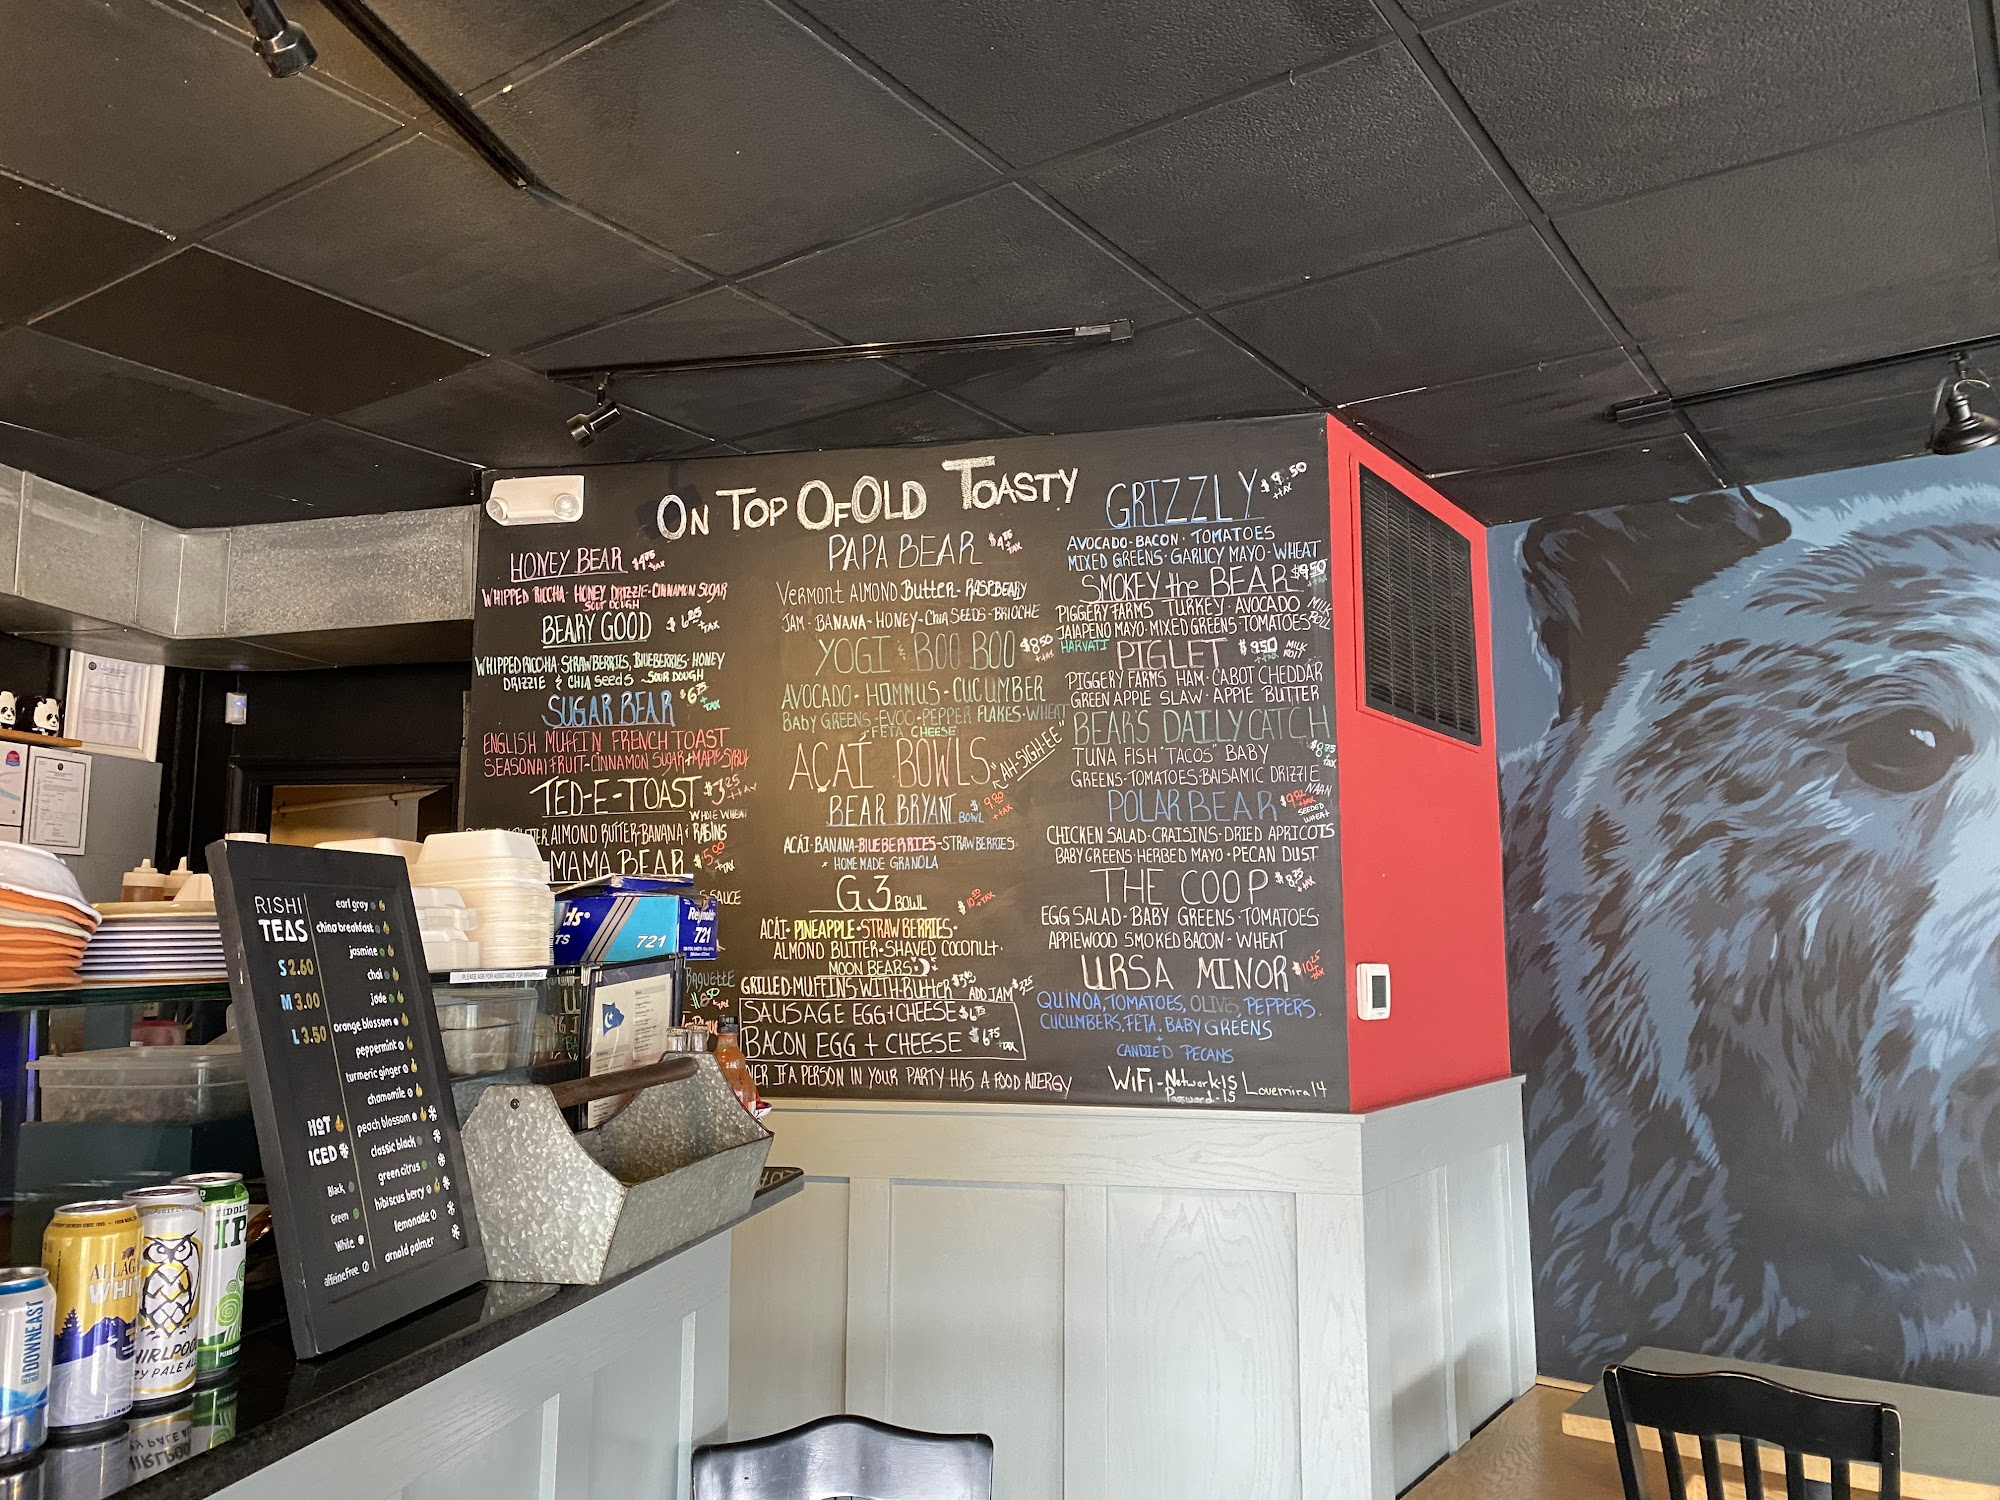 ON TOP OF OLD TOASTY
HONEY BEAR $4.75 +TAX
WHIPPED RICCHA · HONEY DRIZZLE · CINNAMON SUGAR
SOUR DOUGH
BEARY GOOD $6.25 +TAX
WHIPPED RICCHA · STRAWBERRIES, BLUEBERRIES · HONEY
DRIZZLE & CHIA SEEDS - SOUR DOUGH
SUGAR BEAR $6.75 + TAX
ENGLISH MUFFIN FRENCH TOAST
SEASONAL FRUIT - CINNAMON SUGAR + MAPLE SYRUP
TED-E-TOAST $3.25 +TAX
WHOLE WHEAT
ALMOND BUTTER - BANANA & RAISINS
MAMA BEAR $5.00 +TAX
SAUCE
BAGUETTE
$8.50
PAPA BEAR $4.75 +TAX
VERMONT ALMOND BUTTER - RASPBEARY
JAM - BANANA - HONEY - CHIA SEEDS - BRIOCHE
YOGI & BOO BOO $8.50 +TAX
AVOCADO - HUMMUS - CUCUMBER
BABY GREENS - EVOO - PEPPER FLAKES - WHEAT
- FETA CHEESE
AÇAÍ BOWLS "AH-SIGH-EE"
BEAR BRYANT BOWL $9.00 +TAX
AÇAÍ - BANANA - BLUEBERRIES - STRAWBERRIES
+ HOMEMADE GRANOLA
G3 BOWL $10.50 +TAX
AÇAÍ - PINEAPPLE - STRAWBERRIES -
ALMOND BUTTER - SHAVED COCONUT.
MOON BEARS
GRILLED MUFFINS WITH BUTTER ADD JAM
SAUSAGE EGG + CHEESE $6.75
BACON EGG + CHEESE $6.75 +TAX
IF A PERSON IN YOUR PARTY HAS A FOOD ALLERGY
GRIZZLY $9.50 +TAX
AVOCADO - BACON · TOMATOES
MIXED GREENS · GARLICY MAYO - WHEAT
SMOKEY the BEAR $9.50 +TAX
PIGGERY FARMS TURKEY · AVOCADO MILK ROLL
JALAPENO MAYO · MIXED GREENS TOMATOES
HARVATI
PIGLET $9.50 +TAX MILK ROLL
PIGGERY FARMS HAM · CABOT CHEDDAR
GREEN APPLE SLAW · APPLE BUTTER
BEAR'S DAILY CATCH
$8.75 +TAX
TUNA FISH "TACOS" BABY
GREENS - TOMATOES - BALSAMIC DRIZZLE
NAAN
POLAR BEAR +TAX
SEEDED WHEAT
CHICKEN SALAD - CRAISINS - DRIED APRICOTS
BABY GREENS · HERBED MAYO · PECAN DUST
THE COOP $8.75 +TAX
EGG SALAD - BABY GREENS · TOMATOES·
APPLEWOOD SMOKED BACON - WHEAT
URSA MINOR $10.25 +TAX
QUINOA, TOMATOES, OLIVES, PEPPERS.
CUCUMBERS, FETA, BABY GREENS
+
CANDIED PECANS
WiFi - Network - IS Lovemira14
Password - IS
RISHI
TEAS
S 2.60
M 3.00
L 3.50
HOT
ICED
Black
Green
White
affeine Free
earl gray
china breakfast
jasmine
chai
jade
orange blossom
peppermint
turmeric ginger
chamomile
peach blossom
classic black
green citrus
hibiscus berry
lemonade
arnold palmer
PLEASE ASK FOR ASSISTANCE
721
Reynolds
721
DOWNEAST
ALLAGA
WHIT
HIRLPOO
ZY PALE AL
FIDDLE
IP